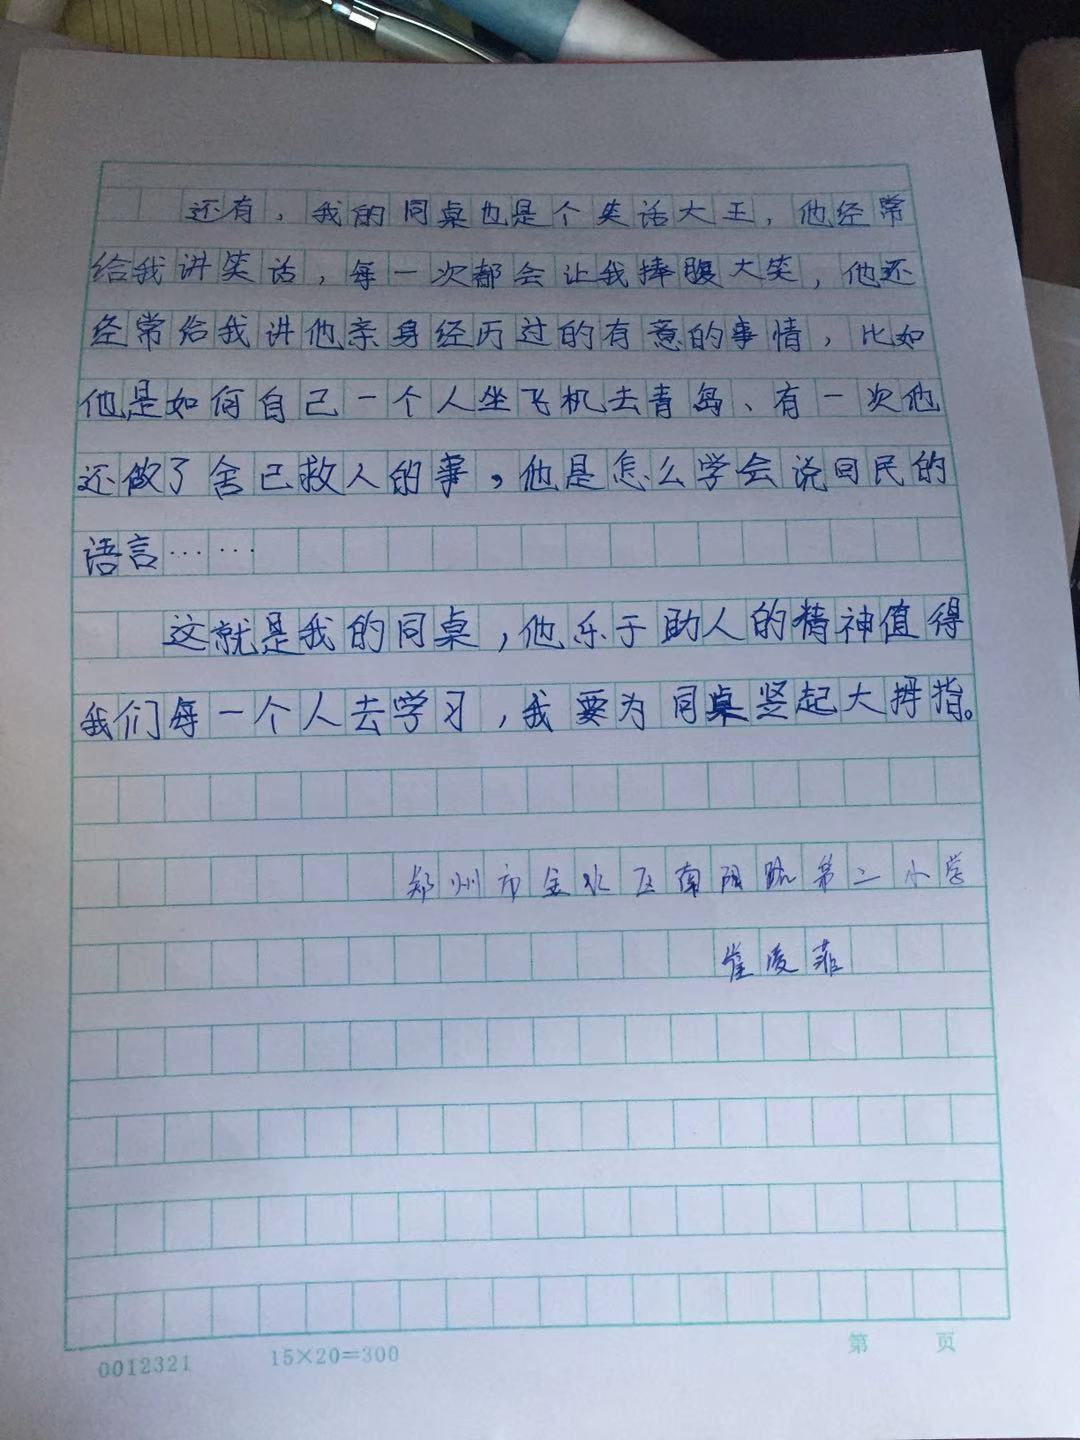 还有，我的同桌也是个笑话大王，他经常
给我讲笑话，每一次都会让我捧腹大笑，他还
经常给我讲他亲身经历过的有意的事情，比如
他是如何自己一个人坐飞机去青岛、有一次他
还做了舍己救人的事，他是怎么学会说回民的
语言……
这就是我的同桌，他乐于助人的精神值得
我们每一个人去学习，我要为同桌竖起大拇指。
郑州市金水区南阳路第二小学
崔凌菲
0012321 15×20=300 第 页